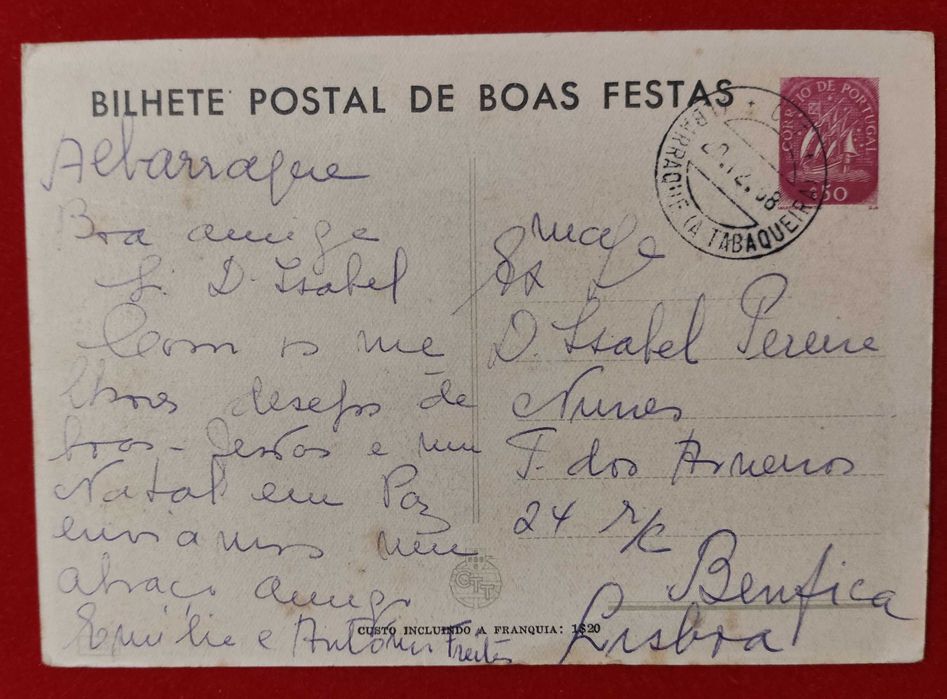 BILHETE POSTAL DE BOAS FESTAS
CORREIO DE PORTUGAL
$50
ALBARRAQUE (A TABAQUEIRA)
Albarraque
Boa amiga
D. Isabel
Com os me
lhores desejos de
boas-festas e um
Natal em Paz
enviamos um
abraço amigo
Emília e António Freitas
D. Isabel Pereira
Nunes
dos Arneiros
24 r/c
Benfica
Lisboa
CTT
CUSTO INCLUINDO A FRANQUIA: 1$20